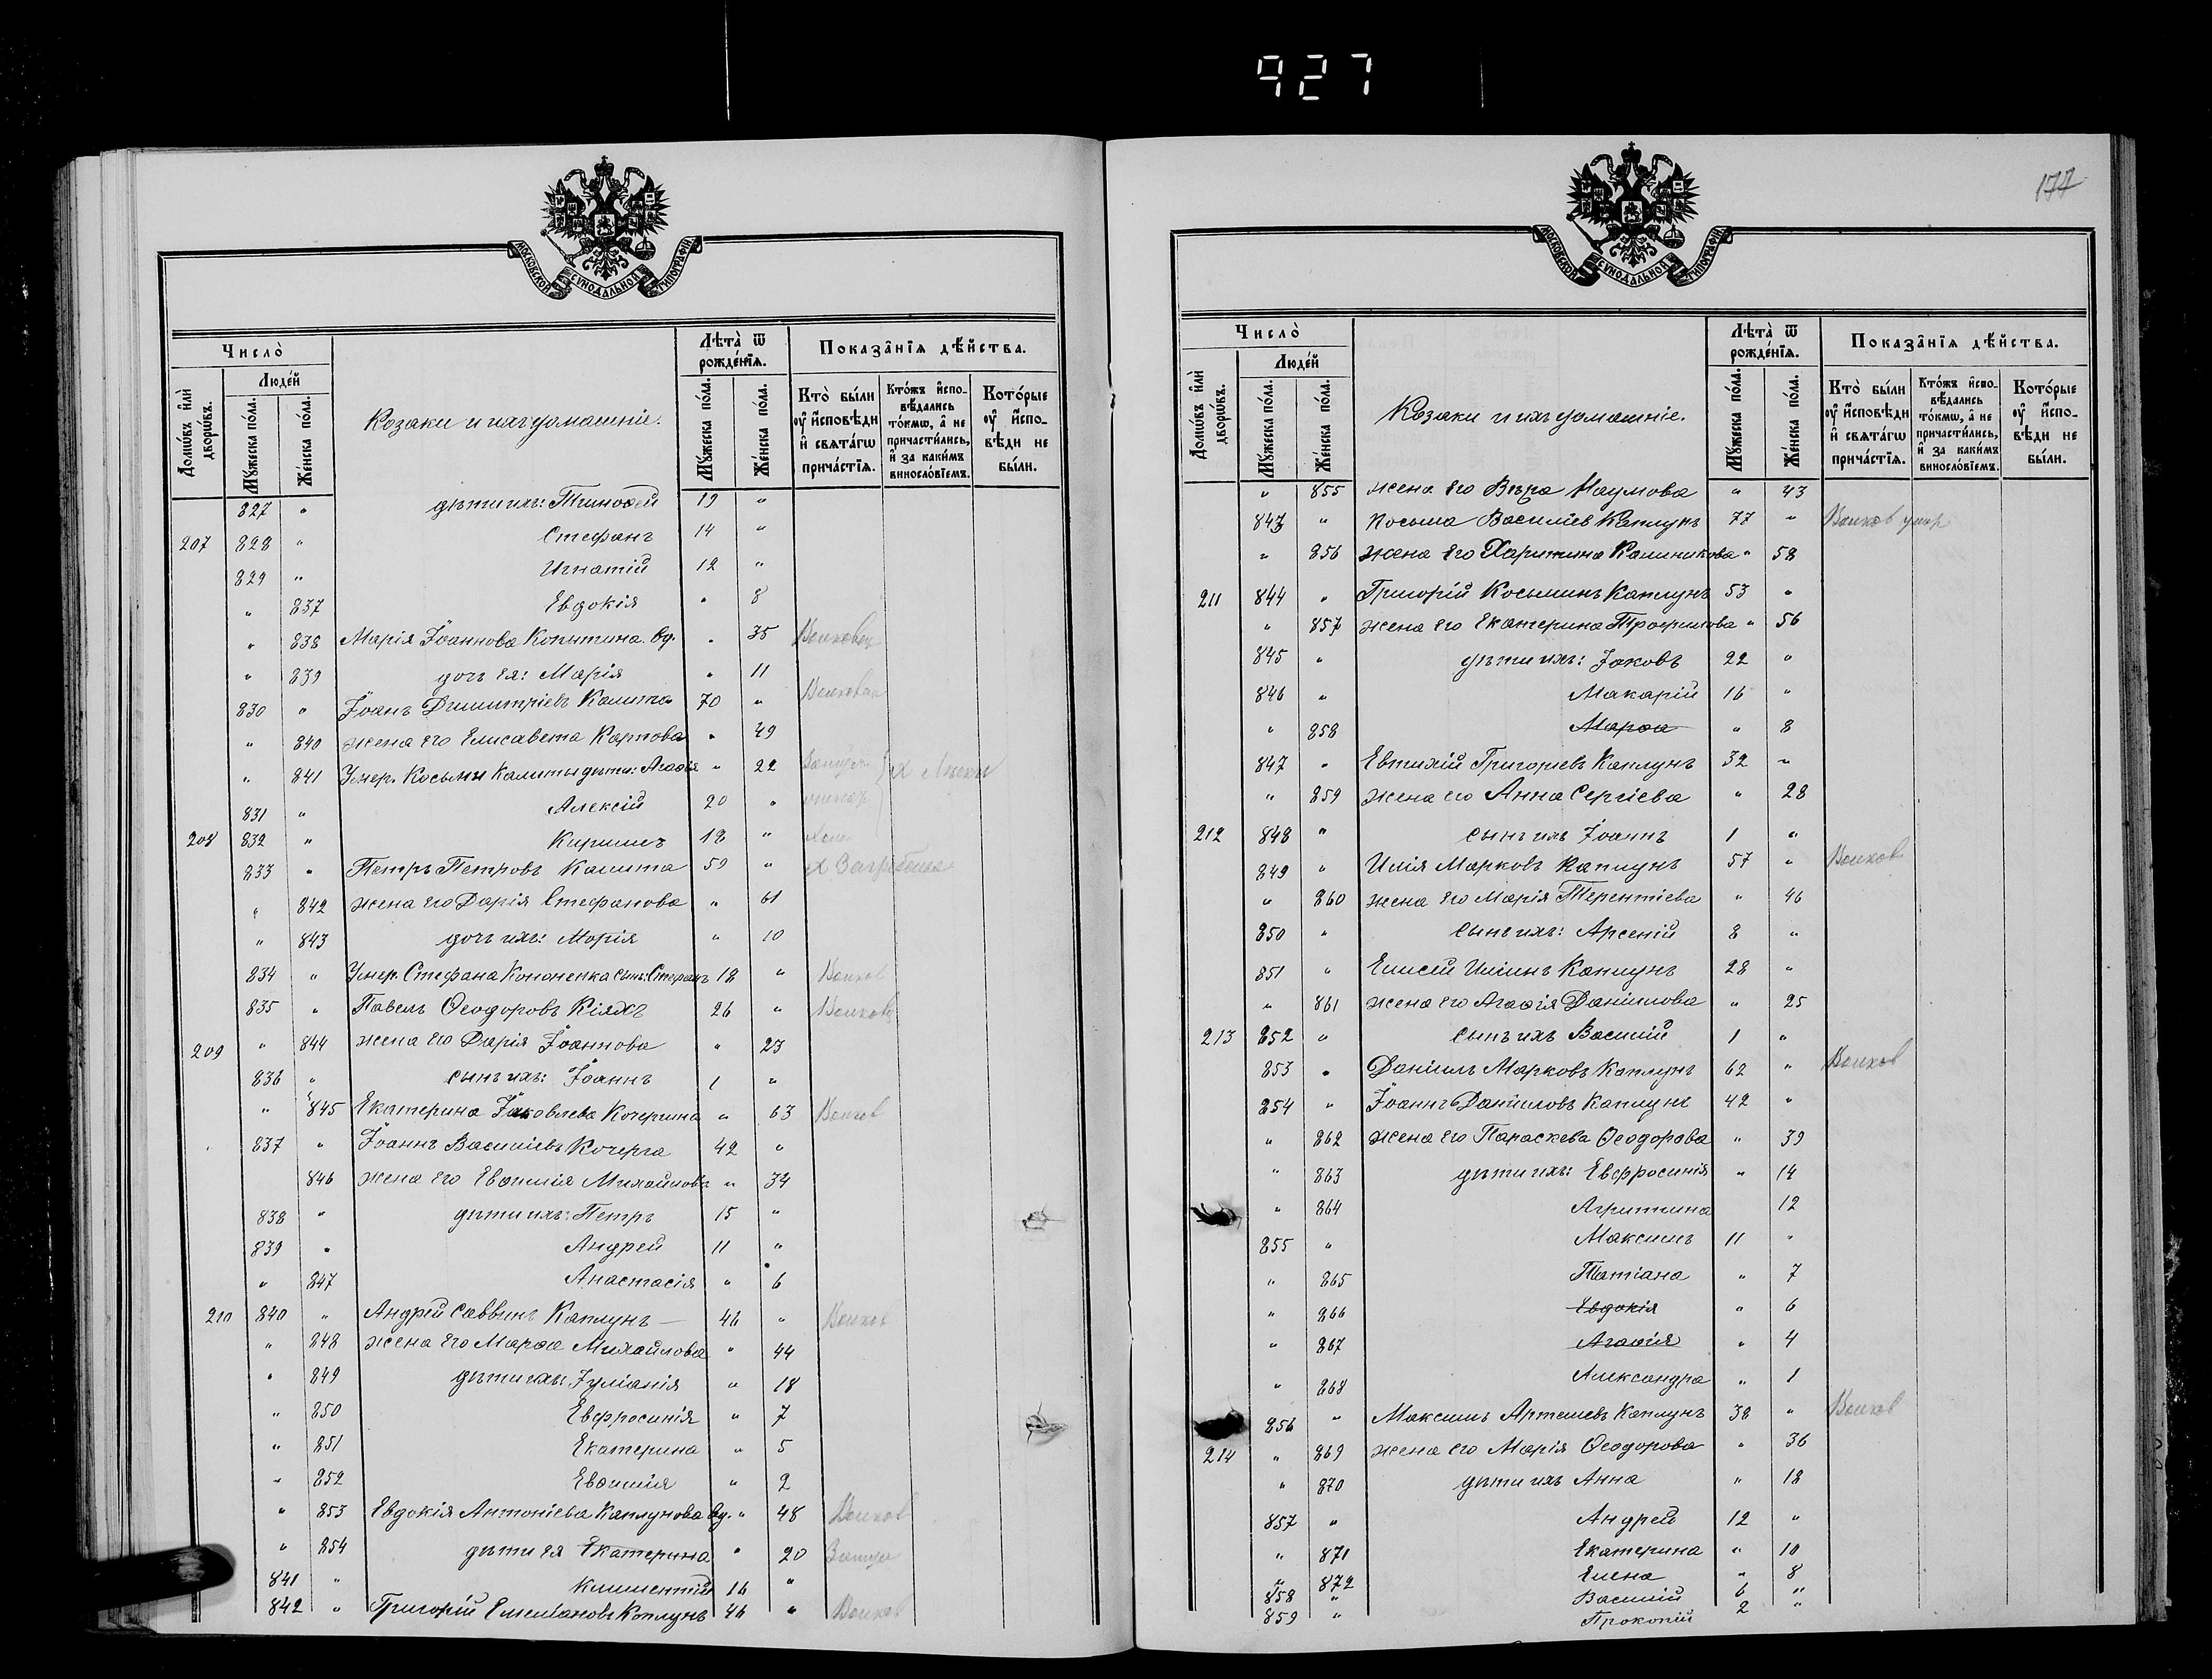 927
МОСКОВСКОЙ СѴНОДАЛЬНОЙ ТИПОГРАФІИ
Число̀
Домѡ́въ и҆лѝ дворѡ́въ.
Люде́й
Мꙋ́жеска по́ла.
Же́нска по́ла.
Козаки и ихъ домашніе.
Лѣта̀ ѿ рожде́нїѧ.
Мꙋ́жеска по́ла.
Же́нска по́ла.
Показа̑нїѧ дѣ́йства.
Кто̀ бы́ли ᲂу҆ и҆́сповѣди и҆ свѧта́гѡ прича́стїѧ.
Кто́жъ и҆спо-вѣ́дались то́кмѡ, а҆ не причасти́лись, и҆ за каки́мъ винословїемъ.
Кото́рые ᲂу҆ и҆спо-вѣди не бы́ли.
827 " дѣти ихъ: Тимоѳей 19 "
207 828 " Стефанъ 14 "
829 " Игнатій 12 "
" 837 Евдокія " 8
" 838 Марія Іоаннова Копытина вд. " 35
" 839 дочь ея: Марія " 11
830 " Іоанъ Димитріевъ Калита 70 "
" 840 жена его Елисавета Карпова " 49
" 841 Умер. Косьмы Калиты дѣти: Агаѳія " 22
831 " Алексій 20 "
208 832 " Кириллъ 18 "
833 " Петръ Петровъ Калита 59 "
" 842 жена его Дарія Стефанова " 61
" 843 дочь ихъ: Марія " 10
834 " Умер. Стефана Кононенка сынъ: Стефанъ 18 " Волков
835 " Павелъ Ѳеодоровъ Кіяхъ 26 "
209 " 844 жена его Дарія Іоаннова " 23
836 " сынъ ихъ: Іоаннъ 1 "
" 845 Екатерина Іаковлева Кочергина " 63 Волков
837 " Іоаннъ Василіевъ Кочерга 42 "
846 жена его Евѳимія Михайлова " 34
838 " дѣти ихъ: Петръ 15 "
839 " Андрей 11 "
" 847 Анастасія " 6
210 840 " Андрей Саввинъ Каплунъ 46 " Волков
" 848 жена его Марѳа Михайлова " 44
" 849 дѣти ихъ: Іуліанія " 18
" 850 Евфросинія " 7
" 851 Екатерина " 5
" 852 Евѳимія " 2
" 853 Евдокія Антоніева Каплунова вд. " 48 Волков
" 854 дѣти ея Екатерина " 20
841 " Климентій 16 "
842 " Григорій Емеліановъ Каплунъ 46 " Волков
177
МОСКОВСКОЙ СѴНОДАЛЬНОЙ ТИПОГРАФІИ
Число̀
Домѡ́въ и҆лѝ дворѡ́въ.
Люде́й
Мꙋ́жеска по́ла.
Же́нска по́ла.
Козаки и ихъ домашніе.
Лѣта̀ ѿ рожде́нїѧ.
Мꙋ́жеска по́ла.
Же́нска по́ла.
Показа̑нїѧ дѣ́йства.
Кто̀ бы́ли ᲂу҆ и҆́сповѣди и҆ свѧта́гѡ прича́стїѧ.
Кто́жъ и҆спо-вѣ́дались то́кмѡ, а҆ не причасти́лись, и҆ за каки́мъ винословїемъ.
Кото́рые ᲂу҆ и҆спо-вѣди не бы́ли.
" 855 жена его Вѣра Наумова " 43
843 " Косьма Василіевъ Каплунъ 77 " Волков умер
" 856 жена его Харитина Калиникова " 58
211 844 " Григорій Косьминъ Каплунъ 53 "
" 857 жена его Екатерина Трофимова " 56
845 " дѣти ихъ: Іаковъ 22 "
846 " Макарій 16 "
" 858 Марѳа " 8
847 " Евтихій Григоріевъ Каплунъ 32 "
" 859 жена его Анна Сергіева " 28
212 848 " сынъ ихъ Іоаннъ 1 "
849 " Илія Марковъ Каплунъ 57 " Волков
" 860 жена его Марія Терентіева " 46
850 " сынъ ихъ: Арсеній 8 "
851 " Елисей Иліинъ Каплунъ 28 "
" 861 жена его Агаѳія Даніилова " 25
213 852 " сынъ ихъ Василій 1 "
853 " Даніилъ Марковъ Каплунъ 62 " Волков
854 " Іоаннъ Даніиловъ Каплунъ 42 "
" 862 жена его Параскева Ѳеодорова " 39
" 863 дѣти ихъ: Евфросинія " 14
" 864 Агриппина 12
855 " Максимъ 11 "
" 865 Татіана " 7
" 866 Евдокія " 6
" 867 Агаѳія " 4
" 868 Александра " 1
856 " Максимъ Артемьевъ Каплунъ 38 " Волков
214 " 869 жена его Марія Ѳеодорова " 36
" 870 дѣти ихъ Анна " 18
857 " Андрей 12 "
" 871 Екатерина " 10
" 872 Елена " 8
858 " Василій 6 "
859 " Прокопій 2 "